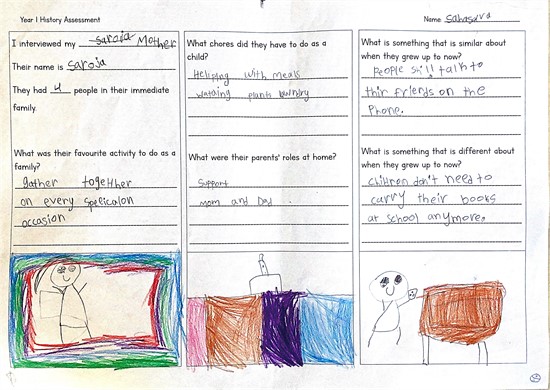 Year 1 History Assessment
Name sahasara
I interviewed my saroja Mother
Their name is saroja
They had 4 people in their immediate
family.
What was their favourite activity to do as a
family?
gather together
on every
occasion
What chores did they have to do as a
child?
Helping with meals
plants laundry
What were their parents' roles at home?
Support
mom and Dad .
What is something that is similar about
when they grew up to now?
people still talk to
thir friends on the
Phone.
What is something that is different about
when they grew up to now?
children don't need to
carry their books
at school anymore.